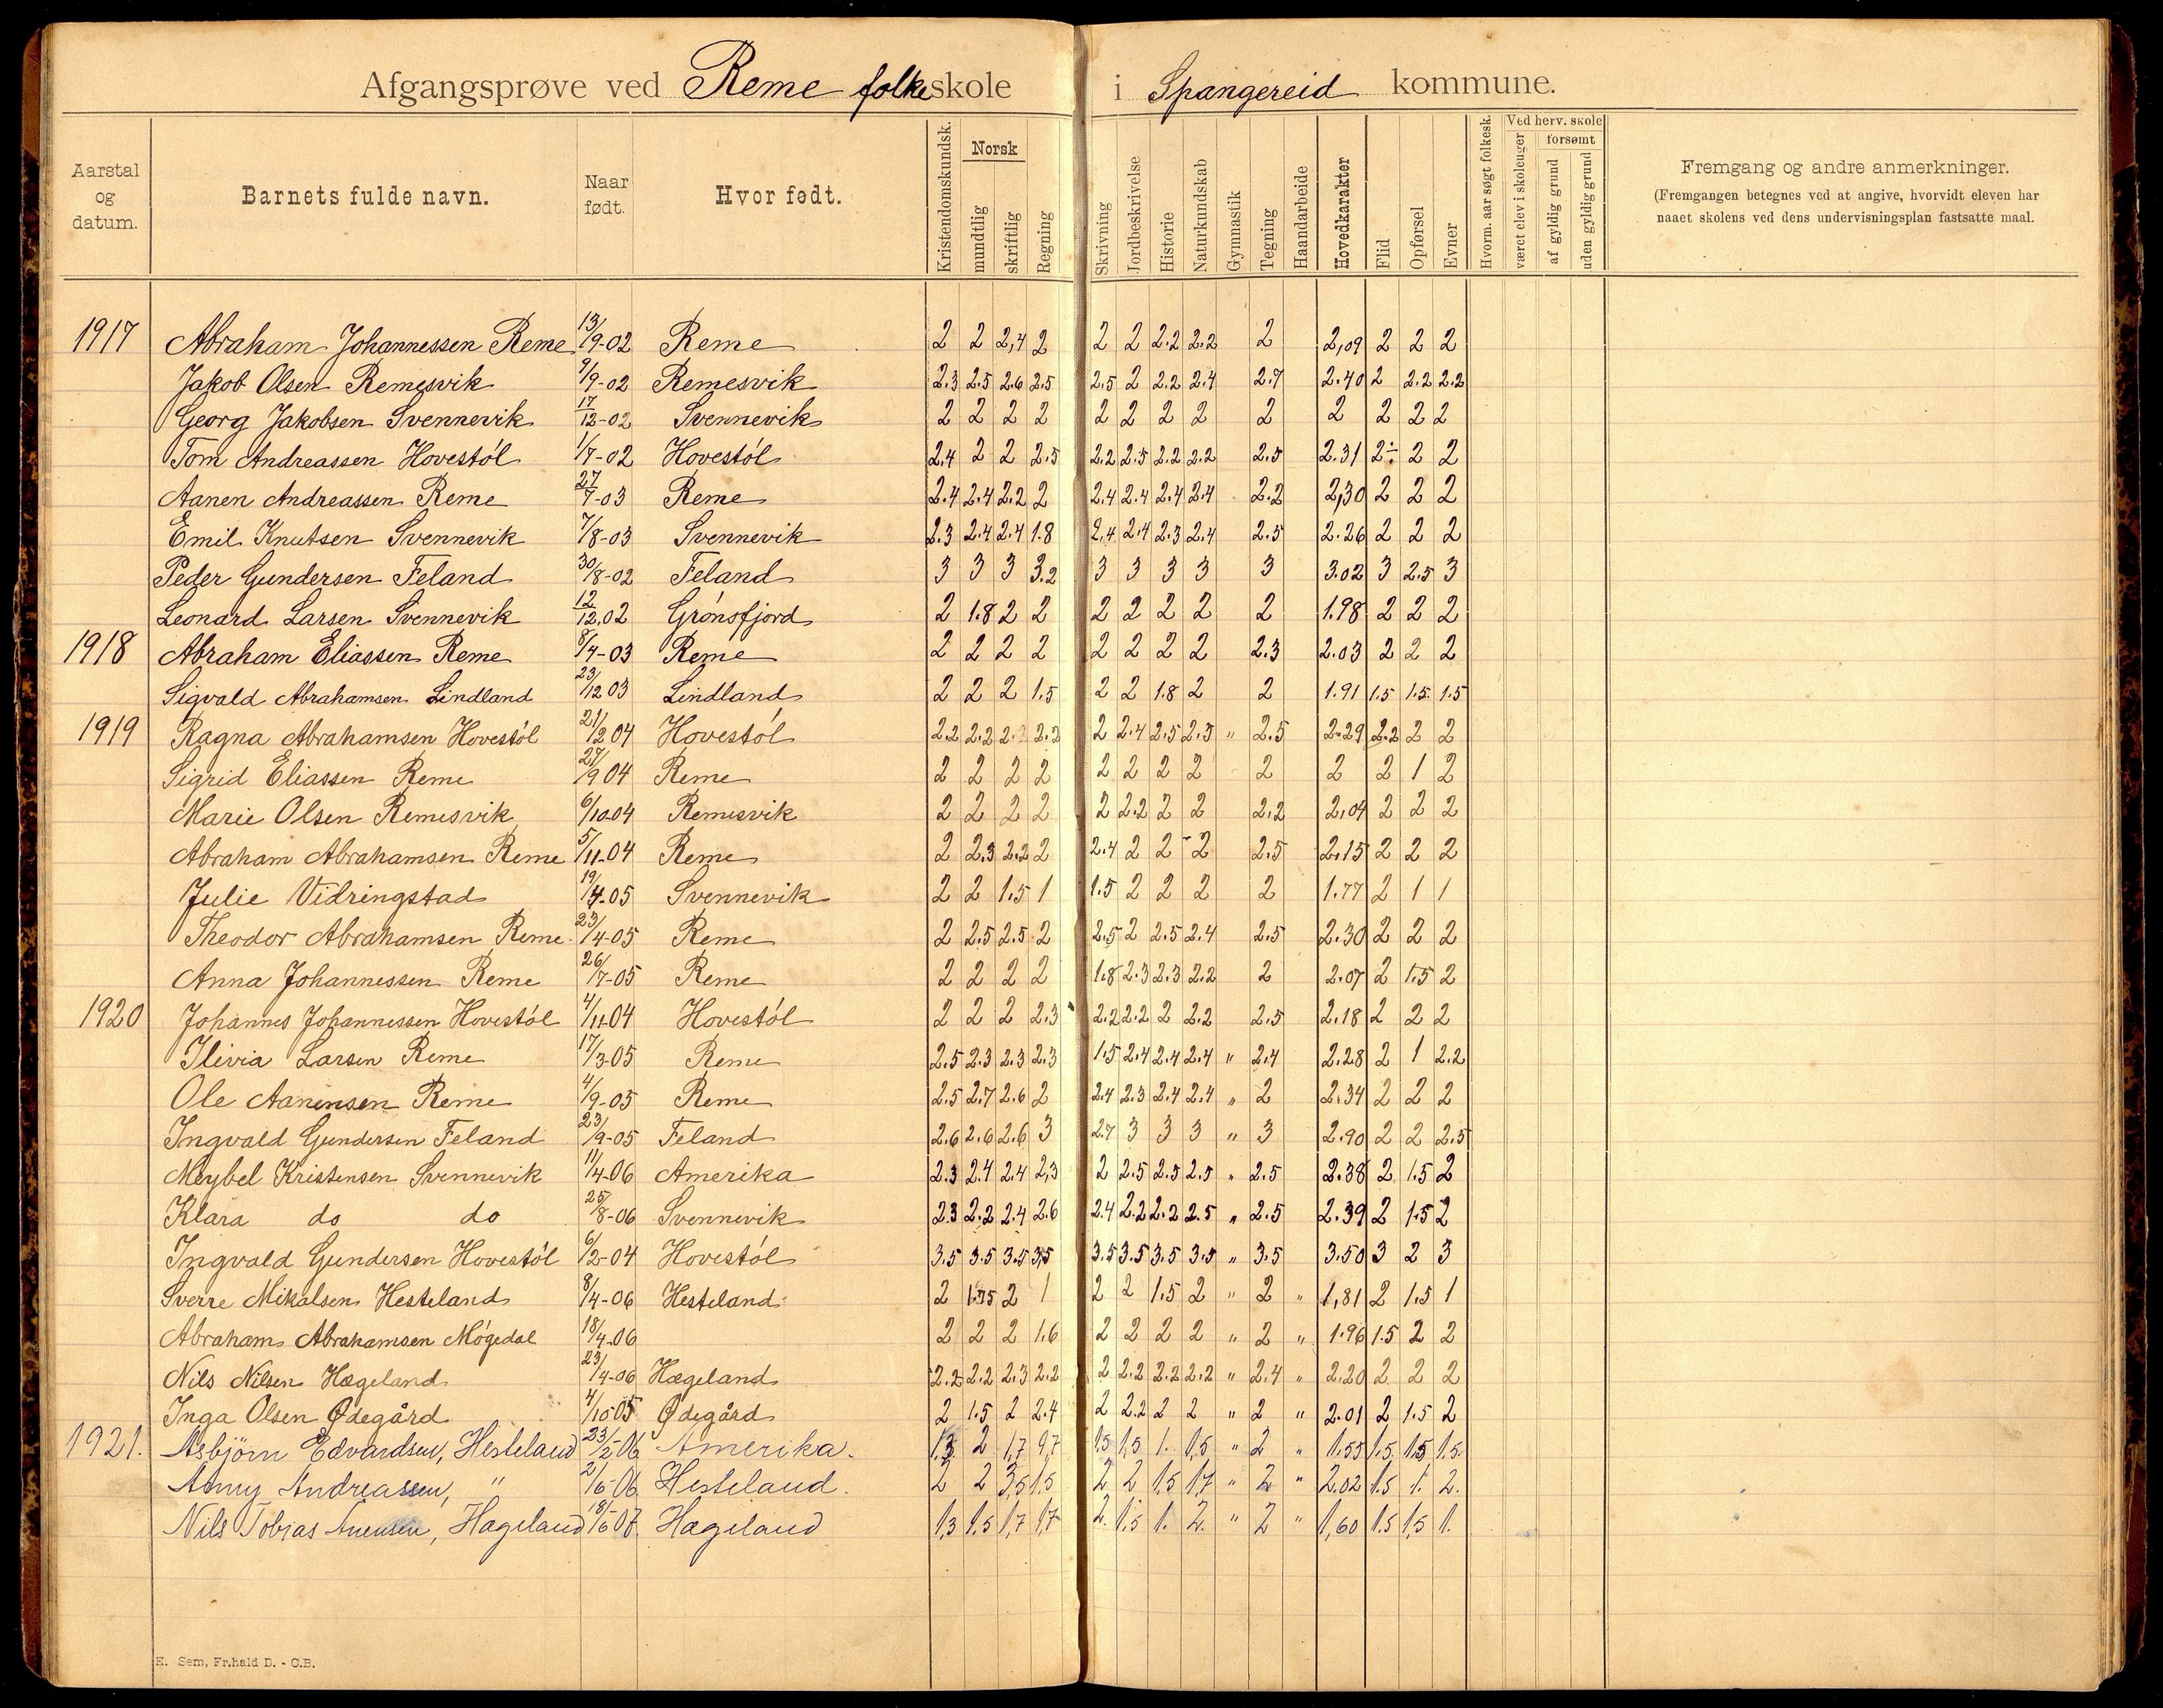 Afgangsprøve ved Reme folkeskole i Spangereid kommune.
Aarstal og datum. Barnets fulde navn. Naar født. Hvor født. Kristendomskundsk. Norsk mundtlig skriftlig Regning Skrivning Jordbeskrivelse Historie Naturkundskab Gymnastik Tegning Haandarbeide Hovedkarakter Flid Opførsel Evner Hvorm. aar søgt folkesk. Ved herv. skole været elev i skoleuger forsømt af gyldig grund uden gyldig grund Fremgang og andre anmerkninger.
(Fremgangen betegnes ved at angive, hvorvidt eleven har
naaet skolens ved dens undervisningsplan fastsatte maal.
1917 Abraham Johannessen Reme 13/9-02 Reme 2 2 2,4 2 2 2 2.2 2.2 2 2,09 2 2 2
Jakob Olsen Remesvik 9/9-02 Remesvik 2.3 2.5 2.6 2.5 2.5 2 2.2 2.4 2.7 2.40 2 2.2 2.2
Georg Jakobsen Svennevik 17/12-02 Svennevik 2 2 2 2 2 2 2 2 2 2 2 2 2
Tom Andreassen Hovestøl 1/7-02 Hovestøl 2.4 2 2 2.5 2.2 2.5 2.2 2.2 2.5 2.31 2÷ 2 2
Aanen Andreassen Reme 27/7-03 Reme 2.4 2.4 2.2 2 2.4 2.4 2.4 2.4 2.2 2,30 2 2 2
Emil Knutsen Svennevik 7/8-03 Svennevik 2.3 2.4 2.4 1.8 2.4 2.4 2.3 2.4 2.5 2.26 2 2 2
Peder Gundersen Feland 30/8-02 Feland 3 3 3 3.2 3 3 3 3 3 3.02 3 2.5 3
Leonard Larsen Svennevik 12/12.02 Grønsfjord 2 1.8 2 2 2 2 2 2 2 1.98 2 2 2
1918 Abraham Eliassen Reme 8/4-03 Reme 2 2 2 2 2 2 2 2 2.3 2.03 2 2 2
Sigvald Abrahamsen Lindland 23/12 03 Lindland 2 2 2 1.5 2 2 1.8 2 2 1.91 1.5 1.5 1.5
1919 Ragna Abrahamsen Hovestøl 21/2 04 Hovestøl 2.2 2.2 2.2 2.2 2 2.4 2.5 2.5 " 2.5 2.29 2.2 2 2
Sigrid Eliassen Reme 27/9 04 Reme 2 2 2 2 2 2 2 2 2 2 2 1 2
Marie Olsen Remesvik 6/10.04 Remesvik 2 2 2 2 2 2.2 2 2 2.2 2,04 2 2 2
Abraham Abrahamsen Reme 5/11-04 Reme 2 2.3 2.2 2 2.4 2 2 2 2.5 2.15 2 2 2
Julie Vidringstad 19/4-05 Svennevik 2 2 1.5 1 1.5 2 2 2 2 1.77 2 1 1
Theodor Abrahamsen Reme 23/4-05 Reme 2 2.5 2.5 2 2.5 2 2.5 2.4 2.5 2.30 2 2 2
Anna Johannessen Reme 26/7-05 Reme 2 2 2 2 1.8 2.3 2.3 2.2 2 2.07 2 1.5 2
1920 Johannes Johannessen Hovestøl 4/11-04 Hovestøl 2 2 2 2.3 2.2 2.2 2 2.2 2.5 2.18 2 2 2
Ilivia Larsen Reme 17/3-05 Reme 2.5 2.3 2.3 2.3 1.5 2.4 2.4 2.4 " 2.4 2.28 2 1 2.2
Ole Aanensen Reme 4/9-05 Reme 2.5 2.7 2.6 2 2.4 2.3 2.4 2.4 " 2 2.34 2 2 2
Ingvald Gundersen Feland 23/9-05 Feland 2.6 2.6 2.6 3 2.7 3 3 3 " 3 2.90 2 2 2.5
Meybel Kristensen Svennevik 11/4-06 Amerika 2.3 2.4 2.4 2,3 2 2.5 2.5 2.5 " 2.5 2.38 2 1.5 2
Klara do do 25/8-06 Svennevik 2.3 2.2 2.4 2.6 2.4 2.2 2.2 2.5 " 2.5 2.39 2 1.5 2
Ingvald Gundersen Hovestøl 6/2-04 Hovestøl 3.5 3.5 3.5 3,5 3.5 3.5 3.5 3.5 " 3.5 3.50 3 2 3
Sverre Mikalsen Hesteland 8/4-06 Hesteland 2 1.75 2 1 2 2 1.5 2 " 2 " 1,81 2 1.5 1
Abraham Abrahamsen Møgedal 18/4-06 2 2 2 1.6 2 2 2 2 " 2 " 1.96 1.5 2 2
Nils Nilsen Hægeland 23/4-06 Hægeland 2.2 2.2 2.3 2.2 2 2.2 2.2 2.2 " 2.4 " 2.20 2 2 2
Inga Olsen Ødegård 4/10-05 Ødegård 2 1.5 2 2.4 2 2.2 2 2 " 2 " 2.01 2 1.5 2
1921. Asbjörn Edvardsen, Hesteland 23/2-06 Amerika. 1,3 2 1,7 1,7 1.5 1,5 1. 1,5 " 2 " 1.55 1.5 1.5 1.5.
Anny Andreassen, " 2/6-06 Hesteland. 2 2 3,5 1.5 2 2 1,5 1,7 " 2 " 2.02 1.5 1. 2.
Nils Tobias Anensen, Hageland 18/6-07 Hægeland 1,3 1.5 1,7 1,7 2. 1.5 1. 2. " 2 " 1,60 1.5 1,5 1.
E. Sem, Fr.hald D. - C.B.